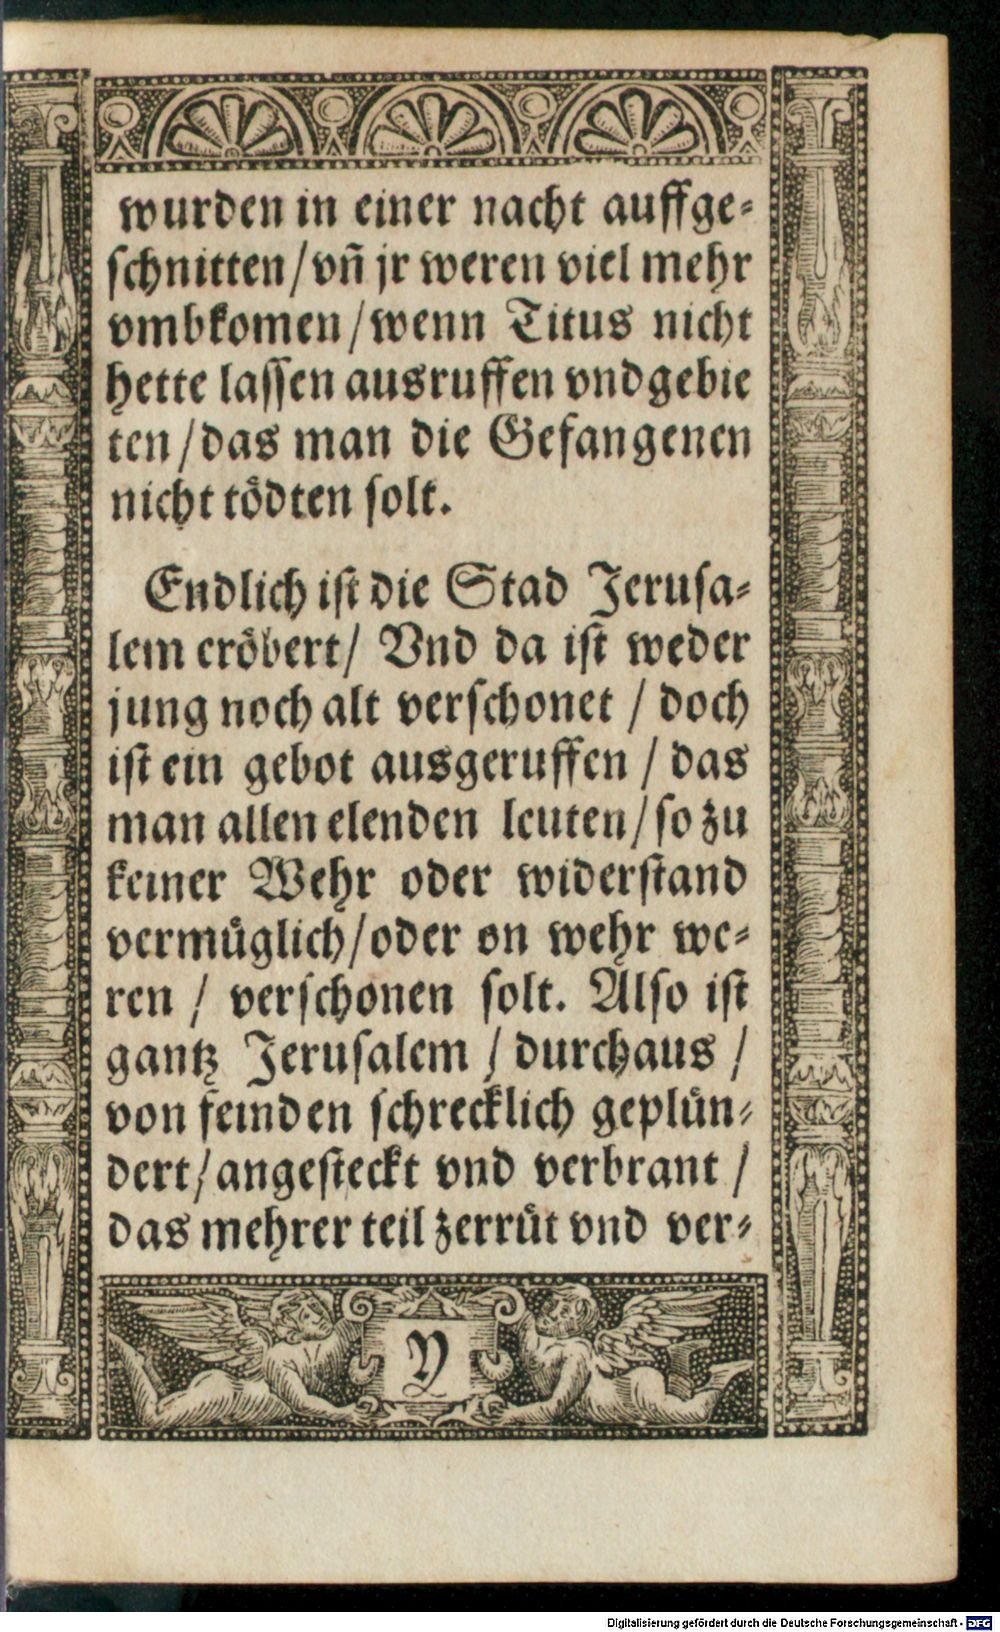 wurden in einer nacht auffge⸗
ſchnitten/vn̄ jr weren viel mehr
vmbkomen/wenn Titus nicht
hette laſſen ausruffen vnd gebie
ten/das man die Gefangenen
nicht toͤdten ſolt.
Endlich iſt die Stad Jeruſa⸗
lem eroͤbert/ Vnd da iſt weder
jung noch alt verſchonet / doch
iſt ein gebot ausgeruffen / das
man allen elenden leuten/ſo zu
keiner Wehr oder widerſtand
vermuͤglich/oder on wehr we⸗
ren / verſchonen ſolt. Alſo iſt
gantz Jeruſalem / durchaus /
von feinden ſchrecklich gepluͤn⸗
dert/angeſteckt vnd verbrant /
das mehrer teil zerruͤt vnd ver⸗
Y
Digitalisierung gefördert durch die Deutsche Forschungsgemeinschaft - DFG